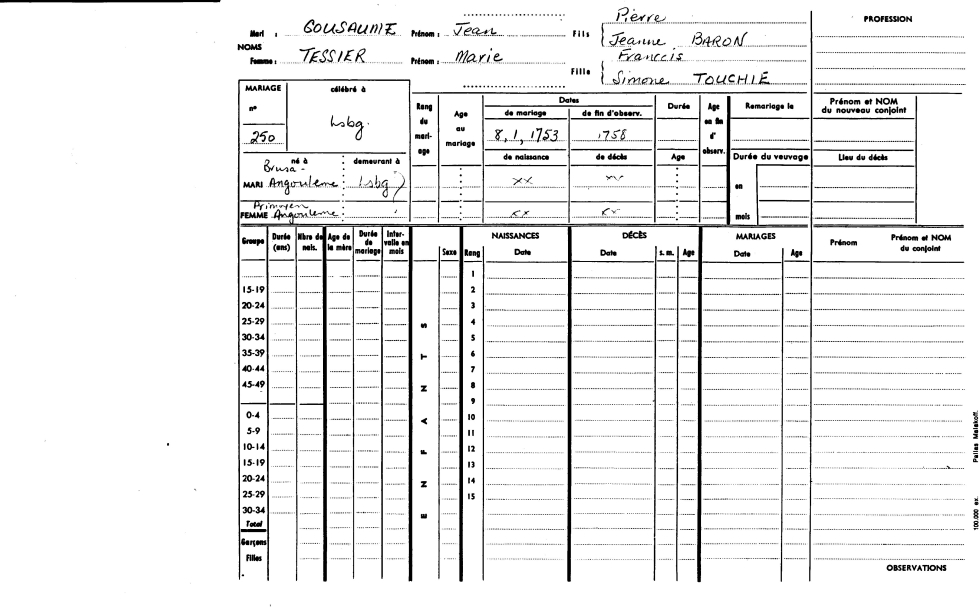 Pierre
Mari : GOUSAUME Prénom : Jean Fils Jeanne BARON PROFESSION
NOMS
Femme : TESSIER Prénom : Marie Fille Franccis
Simone TOUCHIE
MARIAGE célébré à
n° 250 Lsbg.
Rang du mariage Age au mariage Dates Durée Age en fin d'observ. Remariage le Prénom et NOM du nouveau conjoint
de mariage de fin d'observ.
8, 1, 1753 1758
de naissance de décès Age Durée du veuvage Lieu du décès
né à demeurant à
MARI Angouleme Lsbg xx xx en
FEMME Angouleme xx xx mois
Groupe Durée (ans) Nbre de nais. Age de la mère Durée de mariage Intervalle en mois Sexe Rang NAISSANCES Date DÉCÈS Date s. m. Age MARIAGES Date Age Prénom Prénom et NOM du conjoint
ENFANTS
1
15-19 2
20-24 3
25-29 4
30-34 5
35-39 6
40-44 7
45-49 8
9
0-4 10
5-9 11
10-14 12
15-19 13
20-24 14
25-29 15
30-34
Total
Garçons
Filles
OBSERVATIONS
100.000 ex. Pallas Malakoff.